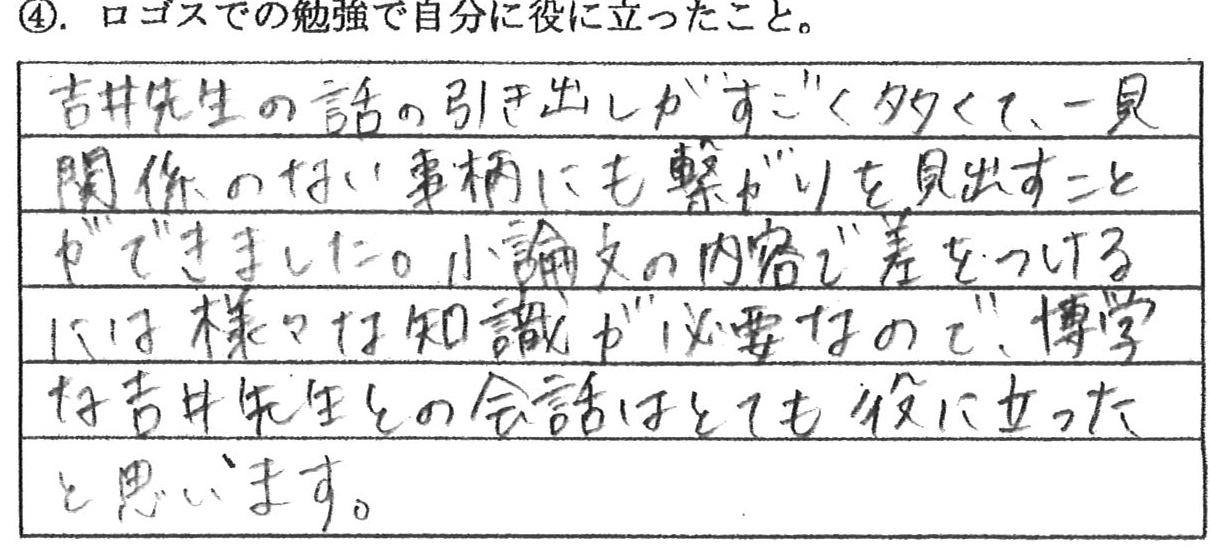 ④. ロゴスでの勉強で自分に役に立ったこと。
吉井先生の話の引き出しがすごく多くて、一見
関係のない事柄にも繋がりを見出すこと
ができました。小論文の内容で差をつける
には様々な知識が必要なので、博学
な吉井先生との会話はとても役に立った
と思います。